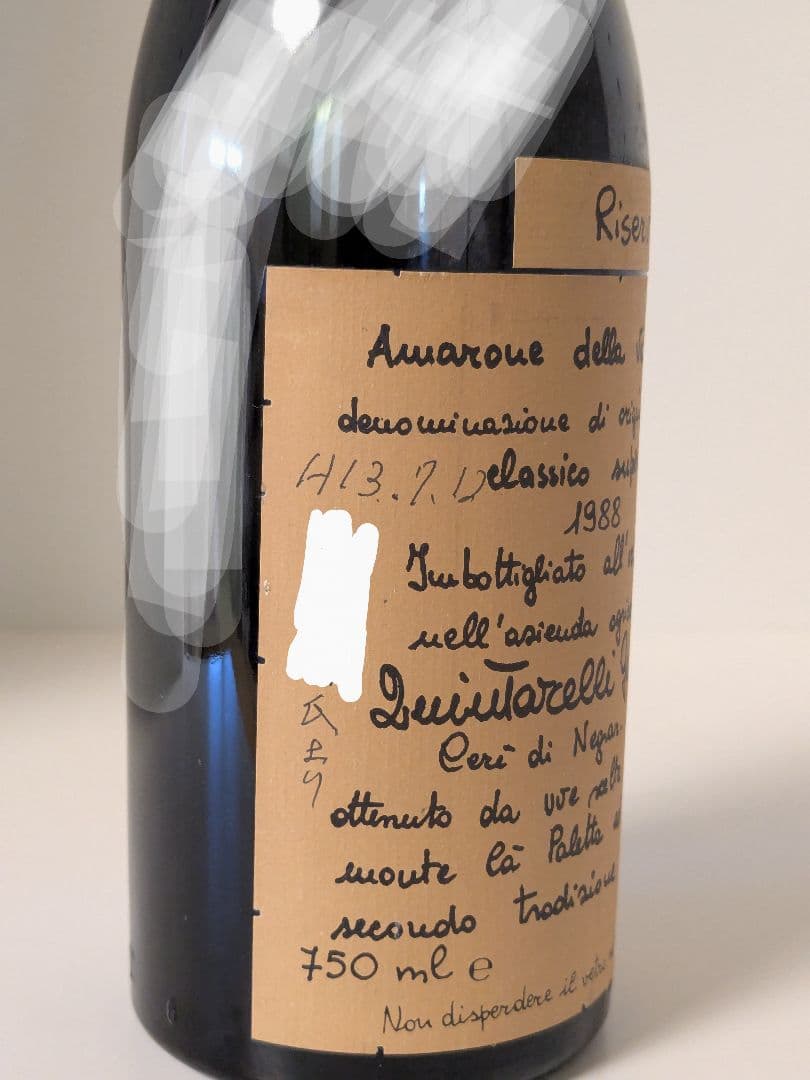 Riser
Amarone della
denominazione di orig
H13.7.12
classico sup
1988
Imbottigliato all'
nell'azienda agri
Quintarelli G
Cerè di Negrar
ottenuto da uve scelt
より
monte Cà Paletta
secondo tradizione
750 ml e
Non disperdere il vetro